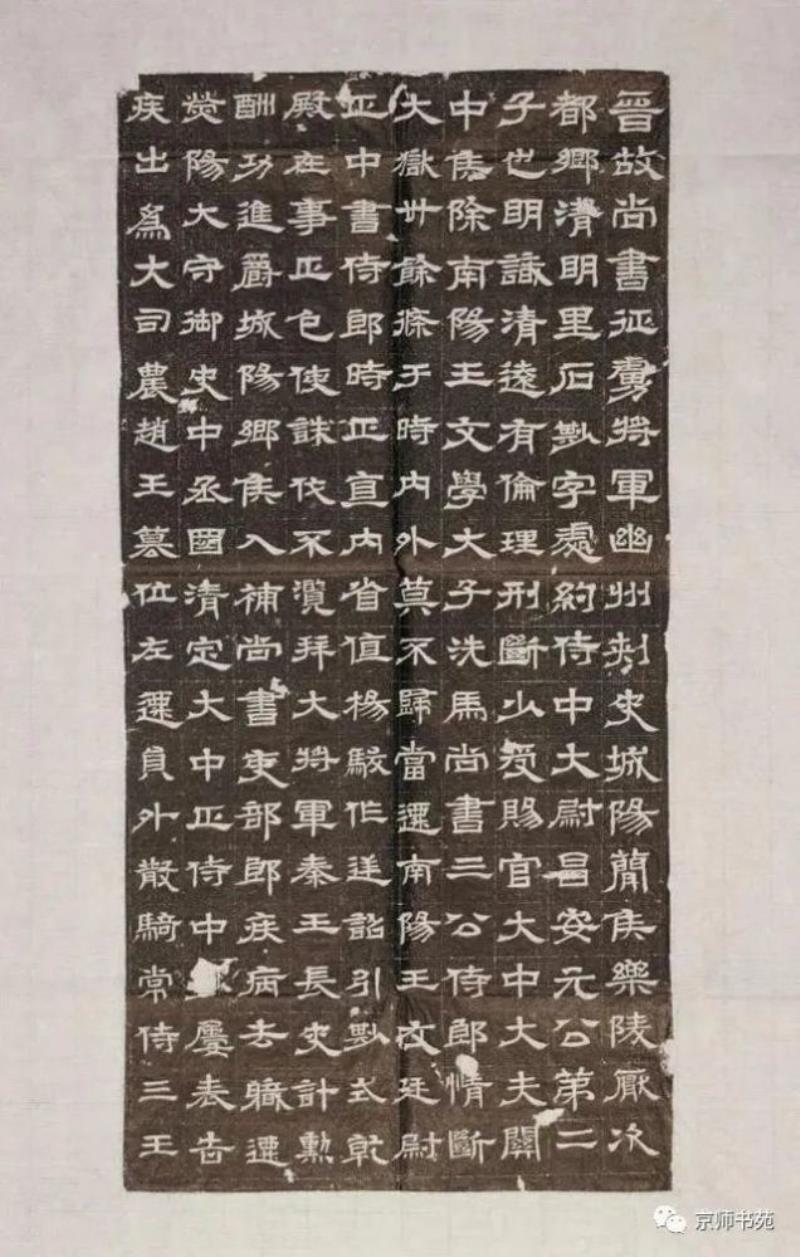 晉故尚書征虜將軍幽州刾史城陽簡侯樂陵厭次
都鄉清明里石尠字處約侍中大尉昌安元公第二
子也明識清遠有倫理刑斷少受賜官大中大夫關
中侯除南陽王文學大子洗馬尚書三公侍郎情斷
大獄卅餘條于時內外莫不歸當遷南陽王文廷尉
正中書侍郎時正直內省值楊駿作逆詔引尠式乾
殿在事正色使誅伐不濫拜大將軍秦王長史計勳
酬功進爵城陽鄉侯入補尚書吏部郎疾病去職遷
熒陽大守御史中丞國清定大中正侍中屢表告
疾出為大司農趙王篡位左遷員外散騎常侍三王
京师书苑